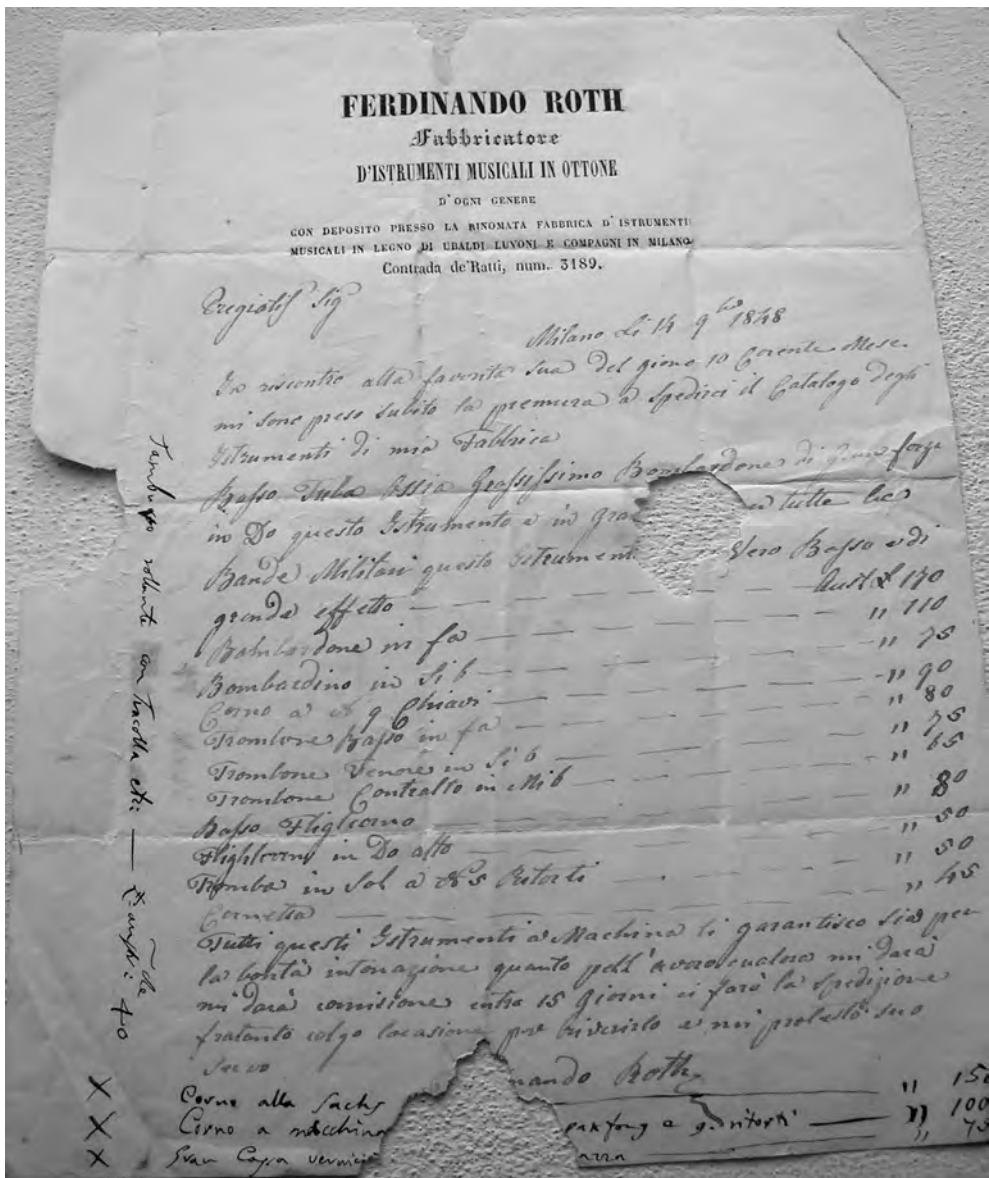 FERDINANDO ROTH
Fabbricatore
D'ISTRUMENTI MUSICALI IN OTTONE
D'OGNI GENERE
CON DEPOSITO PRESSO LA RINOMATA FABBRICA D'ISTRUMENTI
MUSICALI IN LEGNO DI UBALDI LUVONI E COMPAGNI IN MILANO
Contrada de'Ratti, num. 3189.
Pregiatis Sig
Milano Li 14 9bre 1848
In riscontro alla favorita Sua del giono 10 Corente Mese
mi sono preso subito la premura a spedirci il Catalogo degli
Istrumenti di mia Fabbrica
Basso Tuba Ossia Grassissimo Bombardone di forza
in Do questo Istrumento e in tutte le
Bande Militari questo Vero Basso e di
grande effetto Aust £ 170
Bombardone in fa " 110
Bombardino in Si b " 75
Corno a 9 Chiavi " 90
Trombone Basso in fa " 80
Trombone Tenore in Si b " 75
Trombone Contralto in Mib " 65
Basso Fliglcorno " 80
Flighlcorno in Do alto " 50
Tromba in Sol a 5 Ritorti " 50
Cornetta " 45
Tutti questi Istrumenti a Machina li garantisco sia per
la bontà intonazione quanto pell' mi darà
mi darà comisione entro 15 Giorni ci farò la spedizione
fratanto colgo locasione per riverirlo e mi protesto suo
Servo
nando Roth
Corno alla Sachs " 150
Corno a macchina a ritorti " 100
Gran Cassa " 75
Tamburo rollante con Tracolla " 40
X
X
X